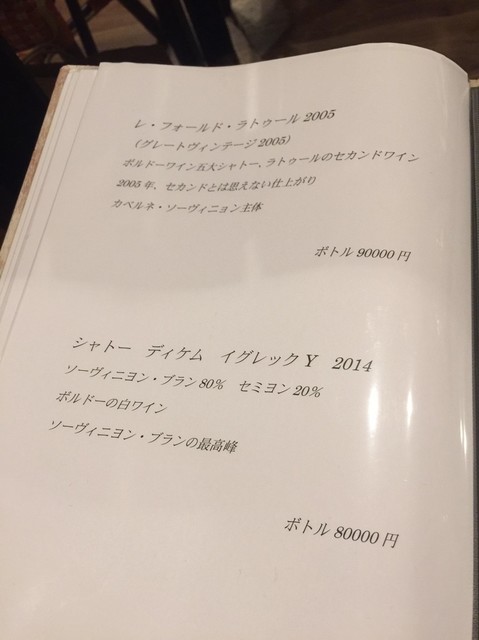 レ・フォールド・ラトゥール 2005
（グレートヴィンテージ 2005）
ボルドーワイン五大シャトー、ラトゥールのセカンドワイン
2005 年、セカンドとは思えない仕上がり
カベルネ・ソーヴィニョン主体
ボトル 90000 円
シャトー　ディケム　イグレック Y　2014
ソーヴィニヨン・ブラン 80%　セミヨン 20%
ボルドーの白ワイン
ソーヴィニヨン・ブランの最高峰
ボトル 80000 円